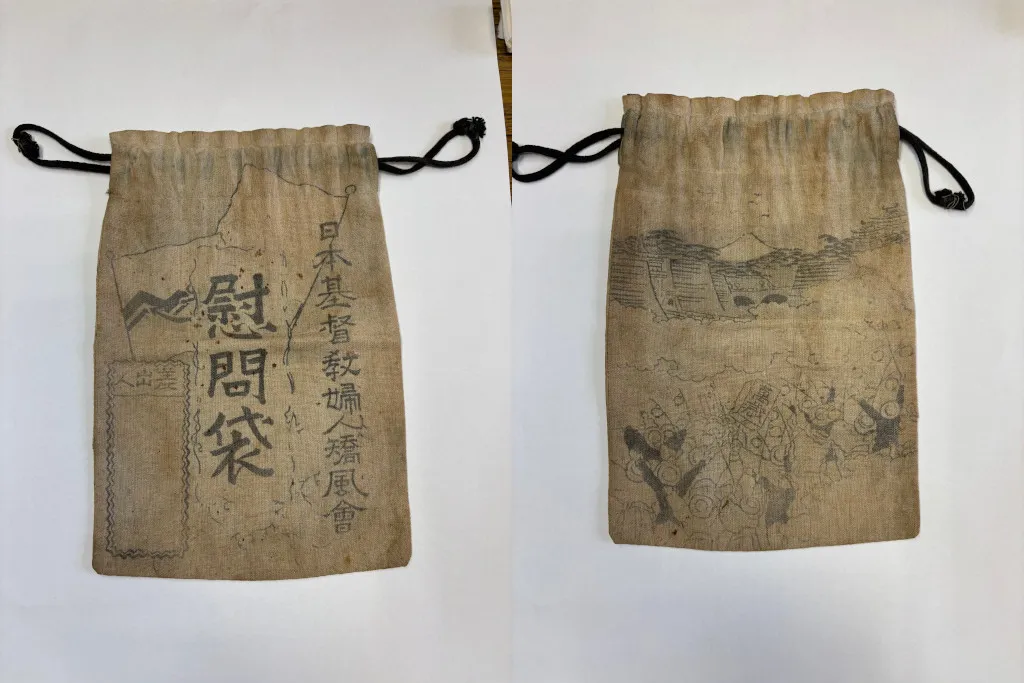 日本基督教婦人矯風會
慰問袋
差出人